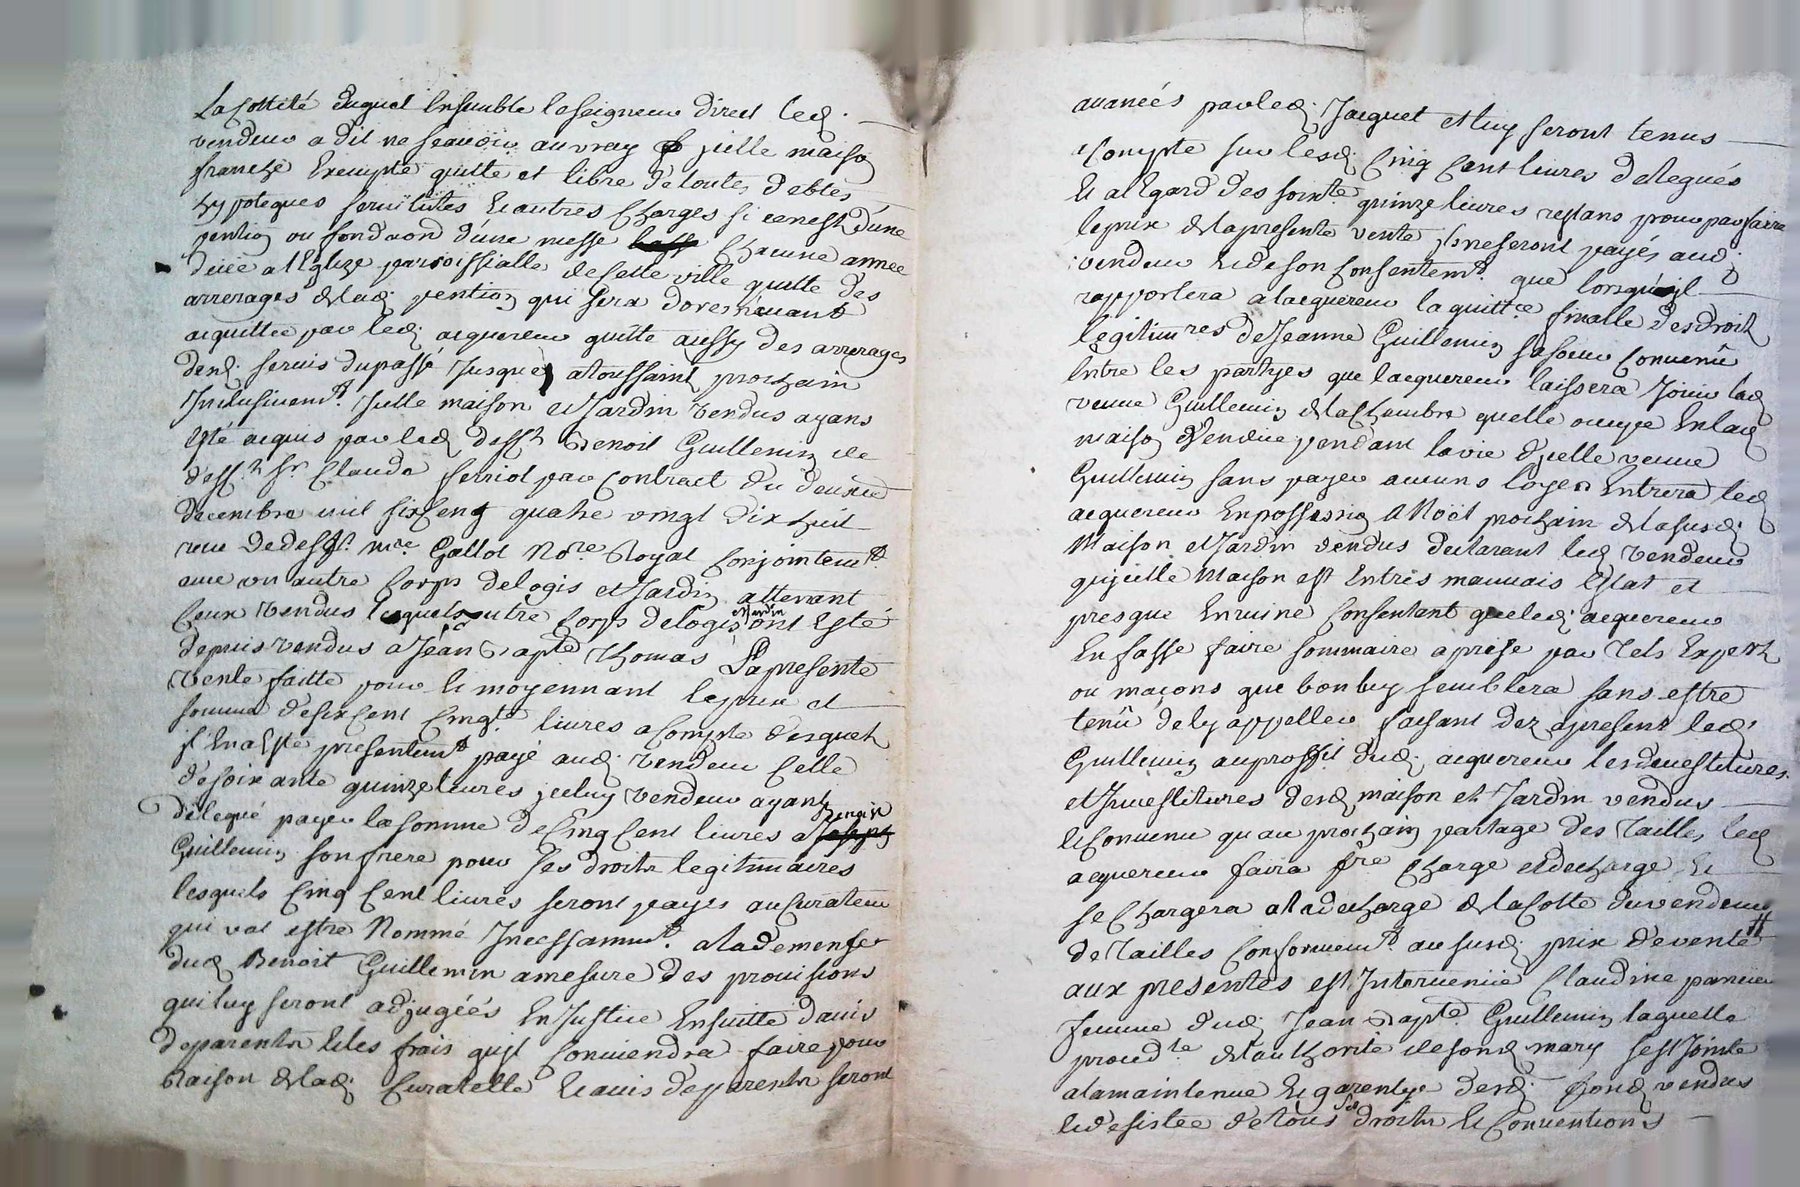 La Cottité duquel Ensemble le seigneur direct led.
vendeur a dit ne scauoir au vray jcelle maison
franche Exempte quitte et libre de toutes debtes
hypoteques seruitutes Et autres Charges si cenest d'une
pention ou fondaon d'une messe Chacune année
deüe a l'Eglize parroissialle de Cette ville quitte des
arrerages de lad. pention qui sera doresnauant
acquittée par led. acquereur quitte aussy des arrerages
dend. seruis du passé Jusques a toussaint prochain
Inclusivemt. Jcelle maison et Jardin vendus ayans
Esté acquis par led defft Benoit Guillemin de
defft. Sr. Claude feriol par Contract du deuxie
decembre mil six Cens quatre vingt dix huit
receu de defft. me. Gallot Nore. Royal Conjointemt.
auec un autre Corps de logis et Jardin attenant
Ceux vendus lesquels autre Corps de logis et Jardin ont Esté
depuis vendus a Jean Bapte. Thomas La presente
vente faitte pour Et moyennant le prix et
somme de six Cent Cinqte. livres a Compte desquels
jl En a Esté presentemt. payé aud. vendeur Celle
de soixante quinze livres jceluy vendeur ayant
delegué payer la somme de Cinq Cent livres a Benoist
Guillemin son frere pour ses droits legitimaires
lesquels Cinq Cent liures seront payés au Curateur
qui vat estre Nommé Jncessammt. a la demense
dud. Benoit Guillemin a mesure des prouisions
qui luy seront adjugéés En Justice Ensuitte d'auis
de parents Et les frais qu'jl Conuiendra faire pour
Raison de lad. Curatelle Et auis de parents seront
auancés par led. Jacquet et luy seront tenus
a Compte sur lesd. Cinq Cent liures delegués
Et a l'Egard des soixte. quinze liures restans pour parfaire
le prix de la presente vente jls ne seront payés aud.
vendeur Et de son Consentemt. que lorsqu'jl
rapportera a lacquereur la quittce. finalle des droits
legitimres de Jeanne Guillemin sa soeur Conuenu
Entre les partyes que lacquereur laissera Jouir lad
veuue Guillemin de la Chambre quelle occupe En lad
maison vendue pendant la vie d'jcelle veuue
Guillemin sans payer aucuns loyers Entrera led
acquereur En possession a Noël prochain de la susd.
Maison et Jardin vendus declarant led vendeur
qu'jcelle Maison est En tres mauuais Estat et
presque En ruine Consentant que led. acquereur
En fasse faire sommaire a prise par Tels Experts
ou maçons que bon luy semblera sans estre
tenû de ly appeller faisant dez apresent led.
Guillemin au proffit dud. acquereur les deuestitures
et Jnuestitures desd. maison et Jardin vendus
Et Conuenu qu'au prochain partage des Tailles led
acquereur faira fre Charge et decharge Et
se Chargera a la decharge de la Cotte du vendeur
de Tailles Conformemt. au susd. prix de vente #
aux presentes est Jnteruenüe Claudine
femme dud. Jean Bapte. Guillemin laquelle
procedte de l'authorité de sond. mary sest Jointe
a la maintenue Et garentye desd. fonds vendus
Et desistée de tous ses droits Et Conuentions